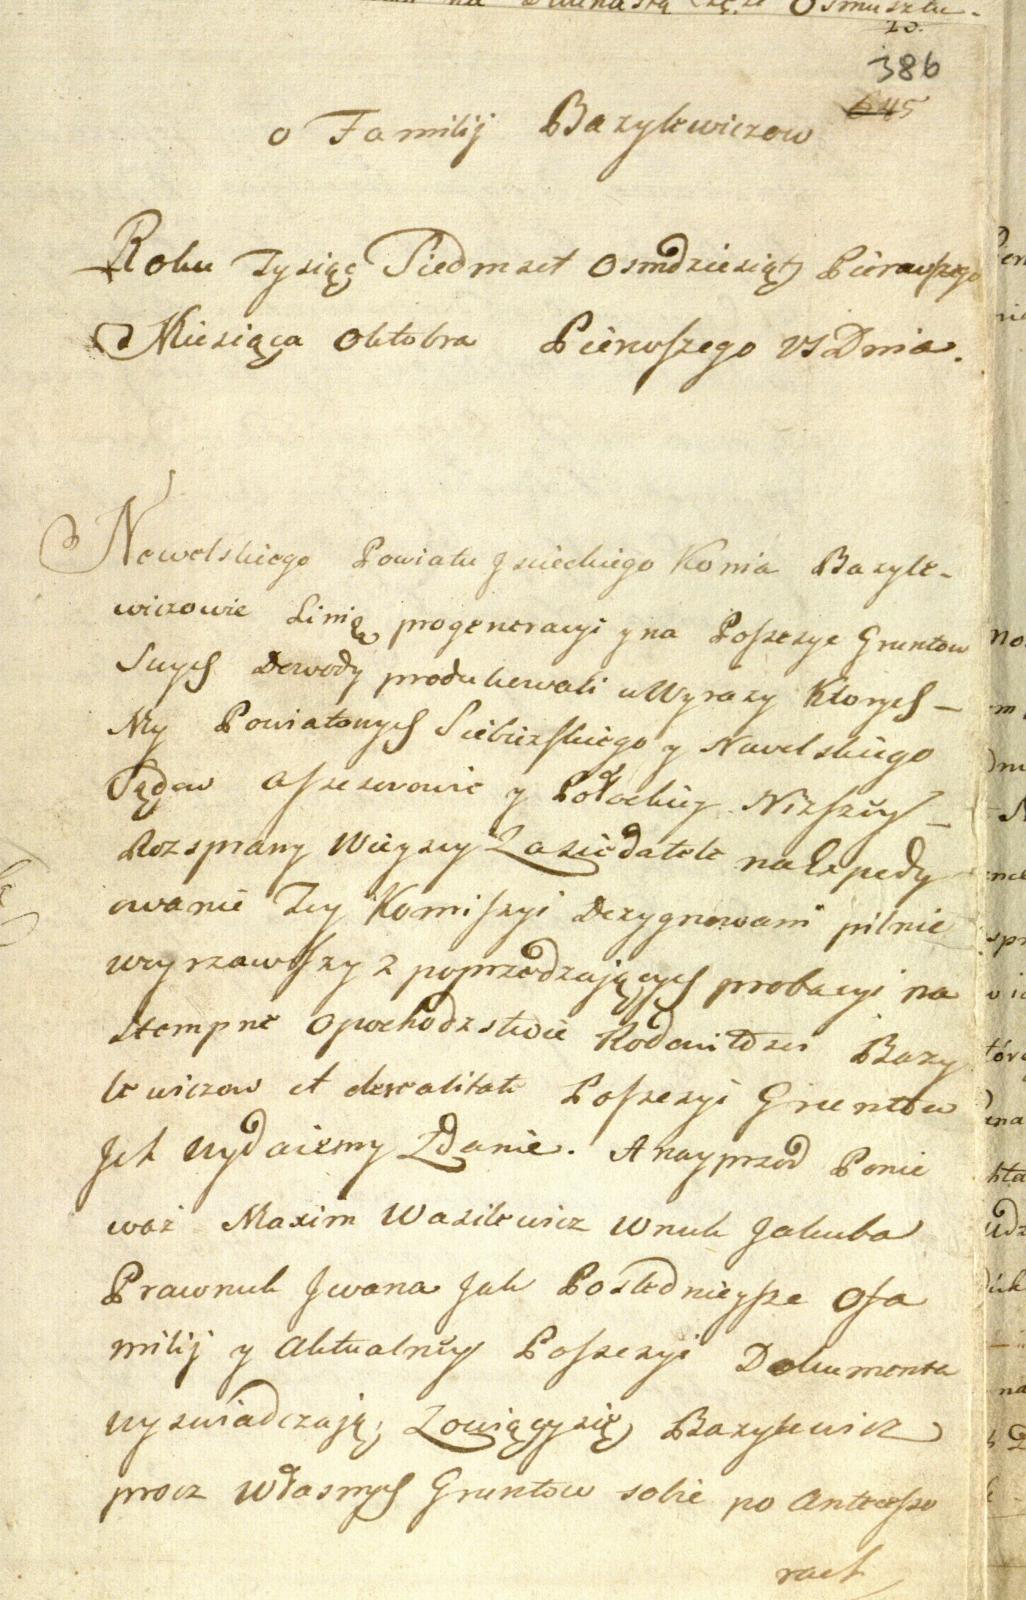 na Dwunastą Część Osmusztu.
23.
386
645
o Familij Bazylewiczow
Roku Tysiąc Siedmset Osmdziesiąt Pierwszego
Miesiąca Oktobra Pierwszego vs Dnia.
Newelskiego Powiatu Jsieckiego Konia Bazyle-
wiczowie Linię progeneracyi y na Possesye Gruntow
Swych Dowody produkowali u Wyrazy Ktorych
My Powiatowych Siebiezskiego y Newelskiego
Sądow Assesorowie y Połockiey Nizszey
Rozsprawy Wieyscy Zasiedatele na Expedy
owanie Tey Komissyi Dezygnowani pilnie
weyrzawszy z poprzedzaiących probacyi na
stempne o pochodzstwie Rodowitosci Bazy
lewiczow et de realitate Possesyi Gruntow
Jch wydaiemy Zdanie. A nayprzod Ponie
waż Maxim Wasilewicz Wnuk Jakuba
Prawnuk Jwana Jak Poslednieysze o Fa
milij y Aktualney Possesyi Dokumenta
wyswiadczaią, Zowiący się Bazylewicz
procz Własnych Gruntow sobie po Antecesso
rach